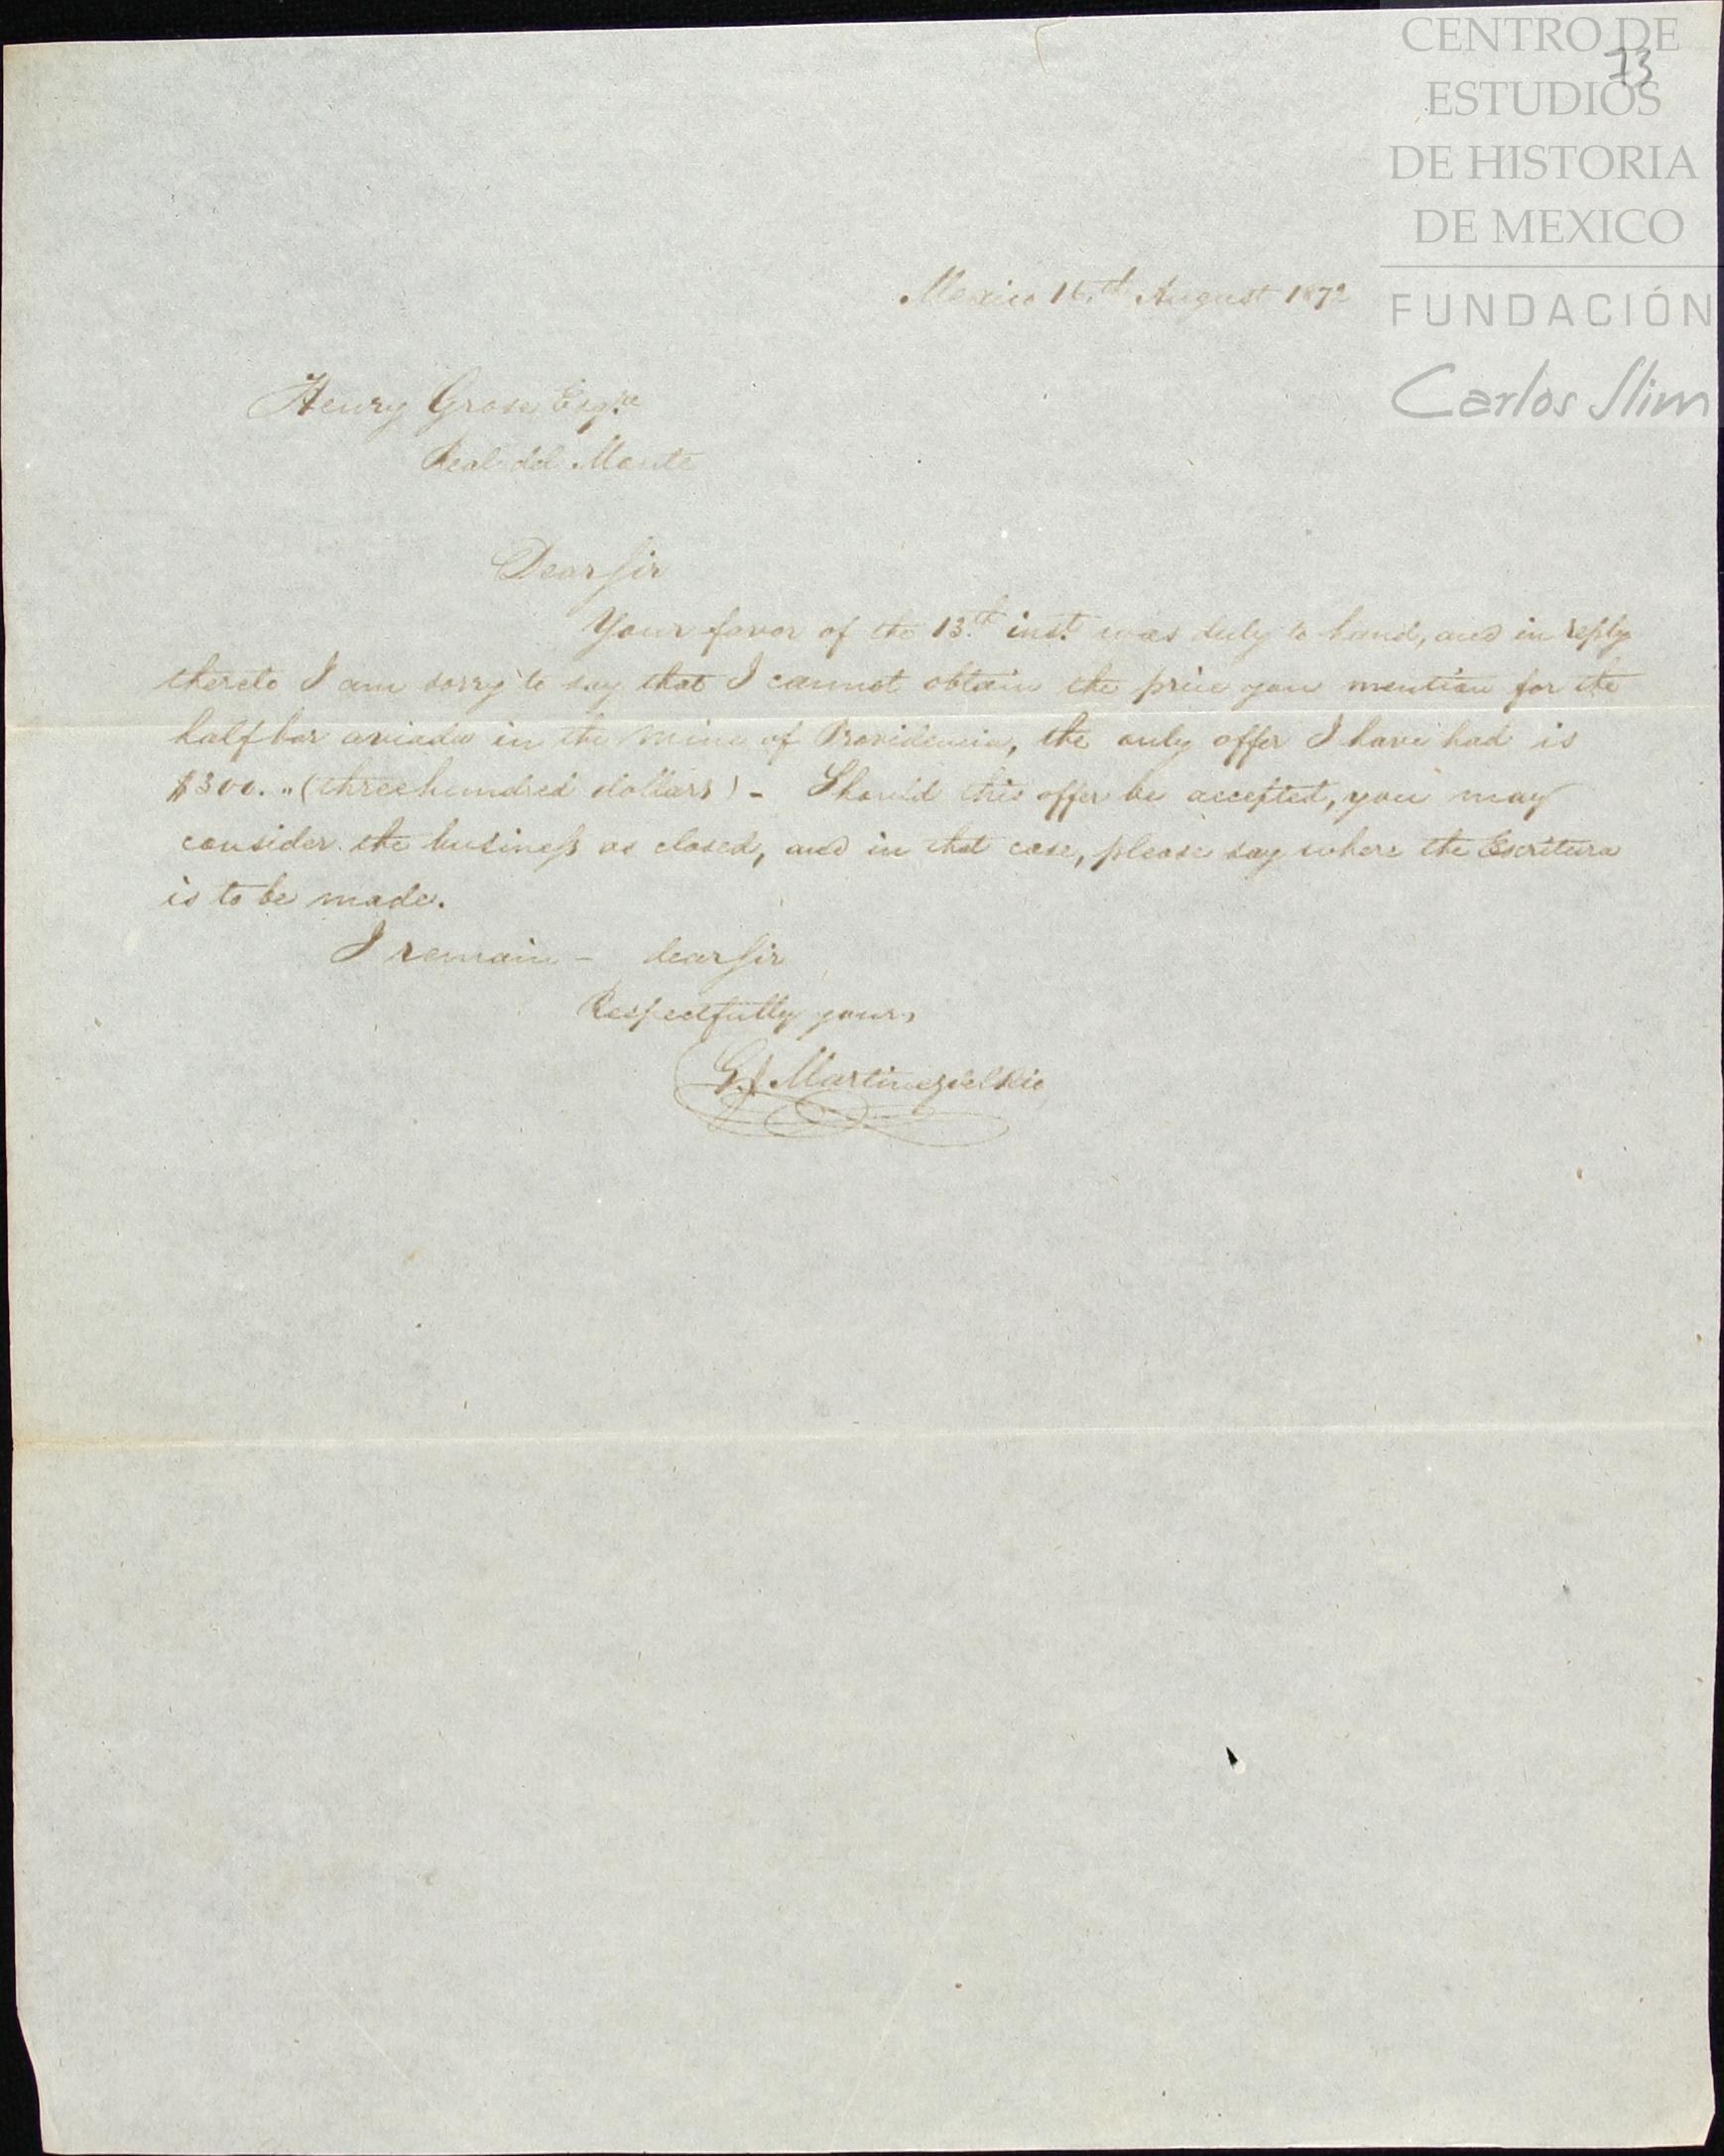 CENTRO DE
ESTUDIOS
DE HISTORIA
DE MEXICO
FUNDACIÓN
Carlos Slim
73
Mexico 16.th August 1872
Henry Grose Esqre
Real del Monte
Dear Sir
Your favor of the 13.th inst. was duly to hand, and in reply
thereto I am sorry to say that I cannot obtain the price you mention for the
half bar aviada in the mine of Providencia, the only offer I have had is
$300.„ (three hundred dollars) - Should this offer be accepted, you may
consider the business as closed, and in that case, please say where the Escritura
is to be made.
I remain - dear Sir
Respectfully yours
Martinez del Rio